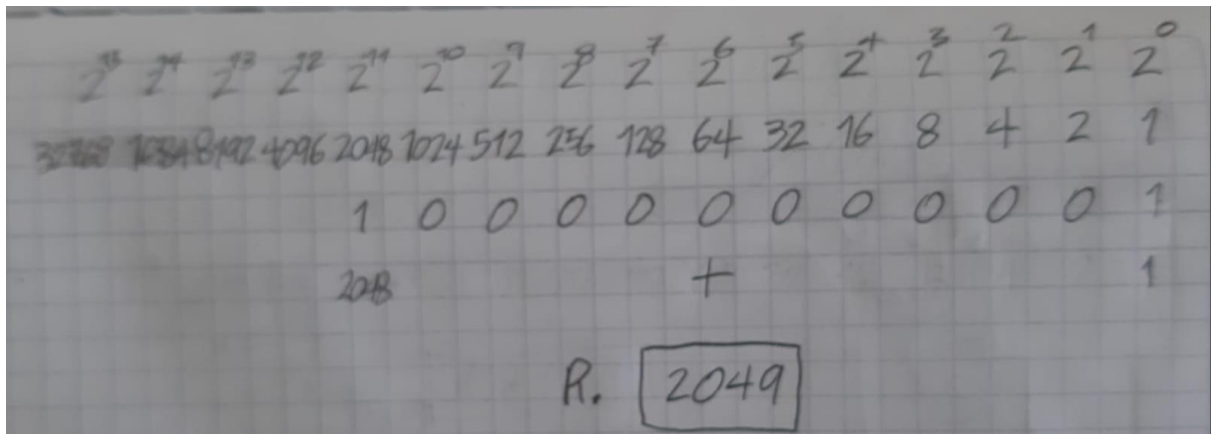 2¹⁵ 2¹⁴ 2¹³ 2¹² 2¹¹ 2¹⁰ 2⁹ 2⁸ 2⁷ 2⁶ 2⁵ 2⁴ 2³ 2² 2¹ 2⁰
32768 8192 4096 2048 1024 512 256 128 64 32 16 8 4 2 1
1 0 0 0 0 0 0 0 0 0 0 1
2048 + 1
R. 2049